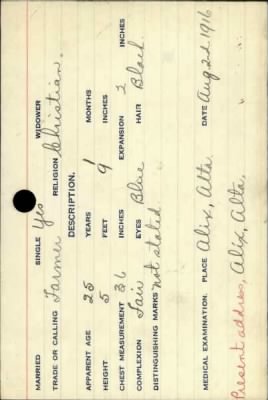 MARRIED SINGLE Yes WIDOWER
TRADE OR CALLING Farmer RELIGION Christian.
DESCRIPTION.
APPARENT AGE 25 YEARS 1 MONTHS
HEIGHT 5 FEET 9 INCHES
CHEST MEASUREMENT 36 INCHES EXPANSION 2 INCHES
COMPLEXION Fair EYES Blue HAIR Black
DISTINGUISHING MARKS not stated
MEDICAL EXAMINATION. PLACE Alix, Alta. DATE Aug 2d 1916
Present address, Alix, Alta.